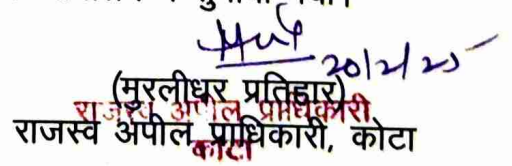 20/2/25
(मुरलीधर प्रतिहार)
राजस्व अपील प्राधिकारी
राजस्व अपील प्राधिकारी, कोटा
कोटा